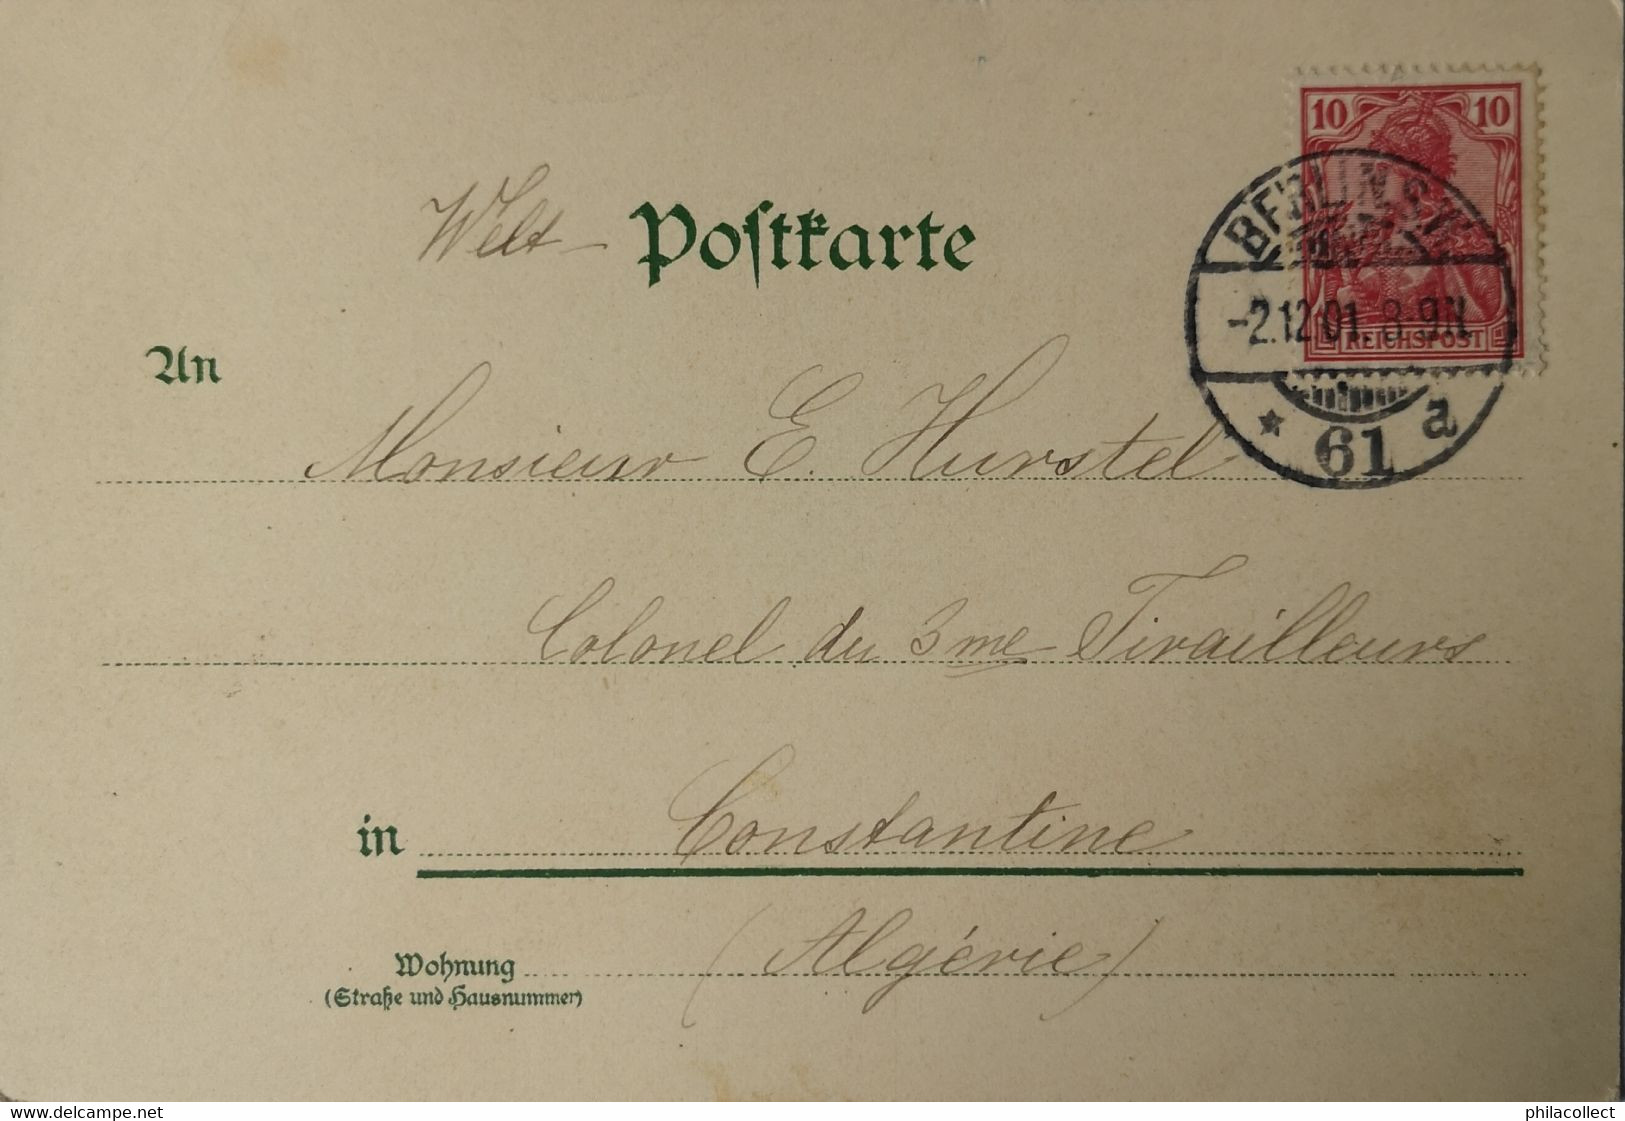 10 10
REICHSPOST
BERLIN.S.W.
-2.12.01. 8-9N.
* 61 a
Welt- Postkarte
An
Monsieur E. Hurstel
Colonel du 3me Tirailleurs
in Constantine
(Algérie)
Wohnung
(Straße und Hausnummer)
www.delcampe.net
philacollect